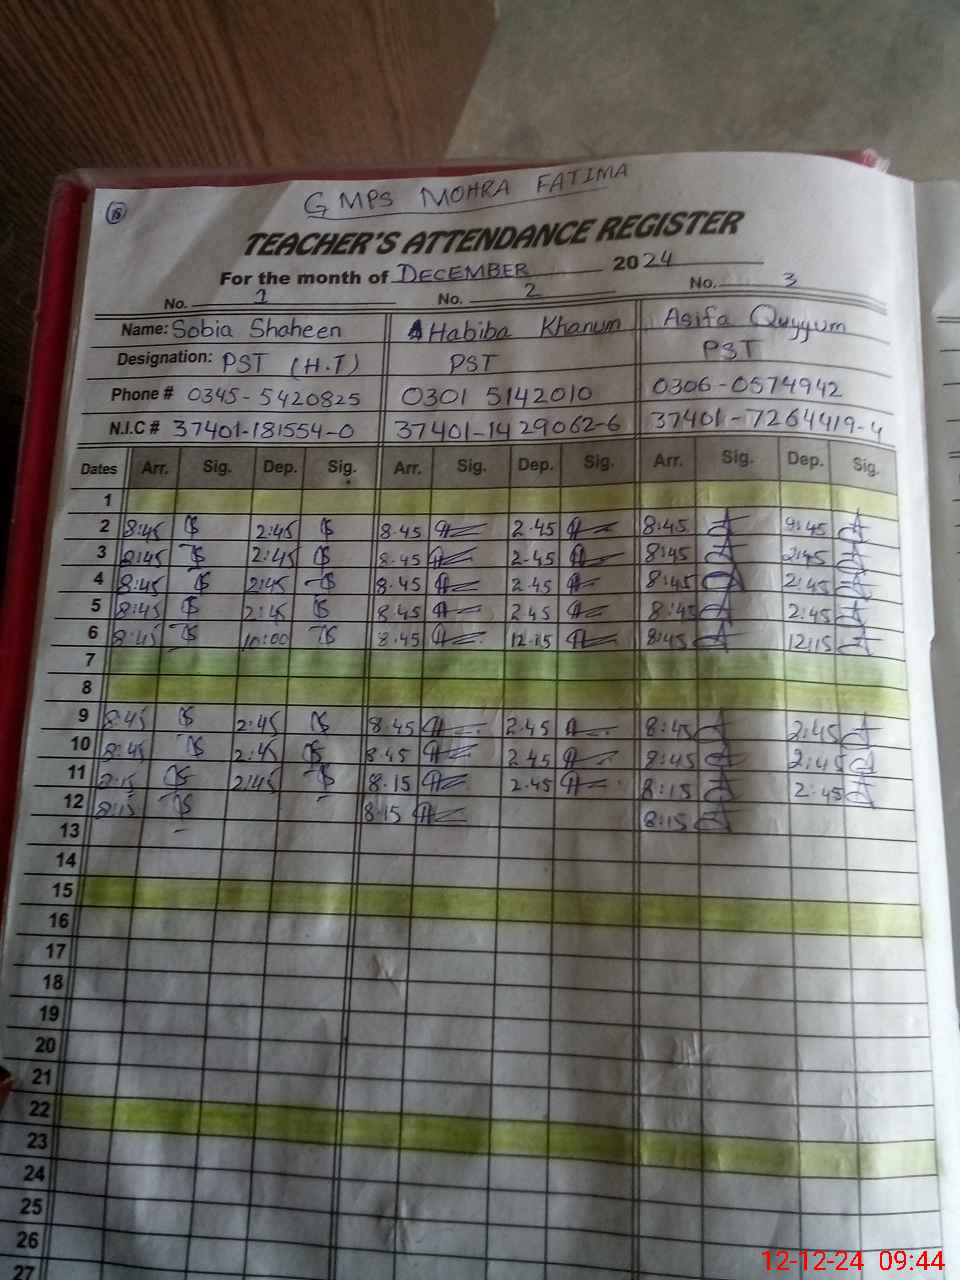 18
G MPS MOHRA FATIMA
TEACHER'S ATTENDANCE REGISTER
For the month of DECEMBER 2024
No. 1 No. 2 No. 3
Name: Sobia Shaheen Habiba Khanum Asifa Quyyum
Designation: PST (H.T) PST PST
Phone # 0345-5420825 0301 5142010 0306-0574942
N.I.C # 37401-181554-0 37401-1429062-6 37401-7264419-4
Dates Arr. Sig. Dep. Sig. Arr. Sig. Dep. Sig. Arr. Sig. Dep. Sig.
1
2 8:45 2:45 8.45 2.45 8:45 2:45
3 8:45 2:45 8.45 2.45 8:45 2:45
4 8:45 2:45 8.45 2.45 8:45 2:45
5 8:45 2:45 8.45 2.45 8:45 2:45
6 8:45 10:00 8.45 12.15 8:45 12:15
7
8
9 8:45 2:45 8.45 2.45 8:45 2:45
10 8:45 2:45 8.45 2.45 8:45 2:45
11 8:15 2:45 8.15 2.45 8:15 2:45
12 8:15 8.15 8:15
13
14
15
16
17
18
19
20
21
22
23
24
25
26
27
12-12-24 09:44